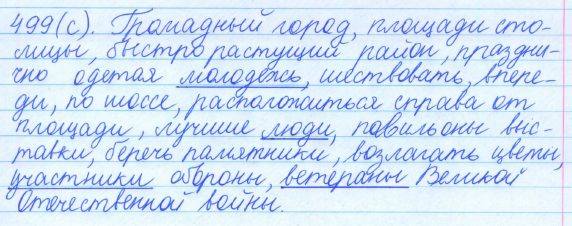 499(с). Громадный город, площади сто-
лицы, быстро растущий район, праздни-
чно одетая молодежь, шествовать, впере-
ди, по шоссе, расположиться справа от
площади, лучшие люди, павильоны выс-
тавки, беречь памятники, возлагать цветы,
участники обороны, ветераны Великой
Отечественной войны.